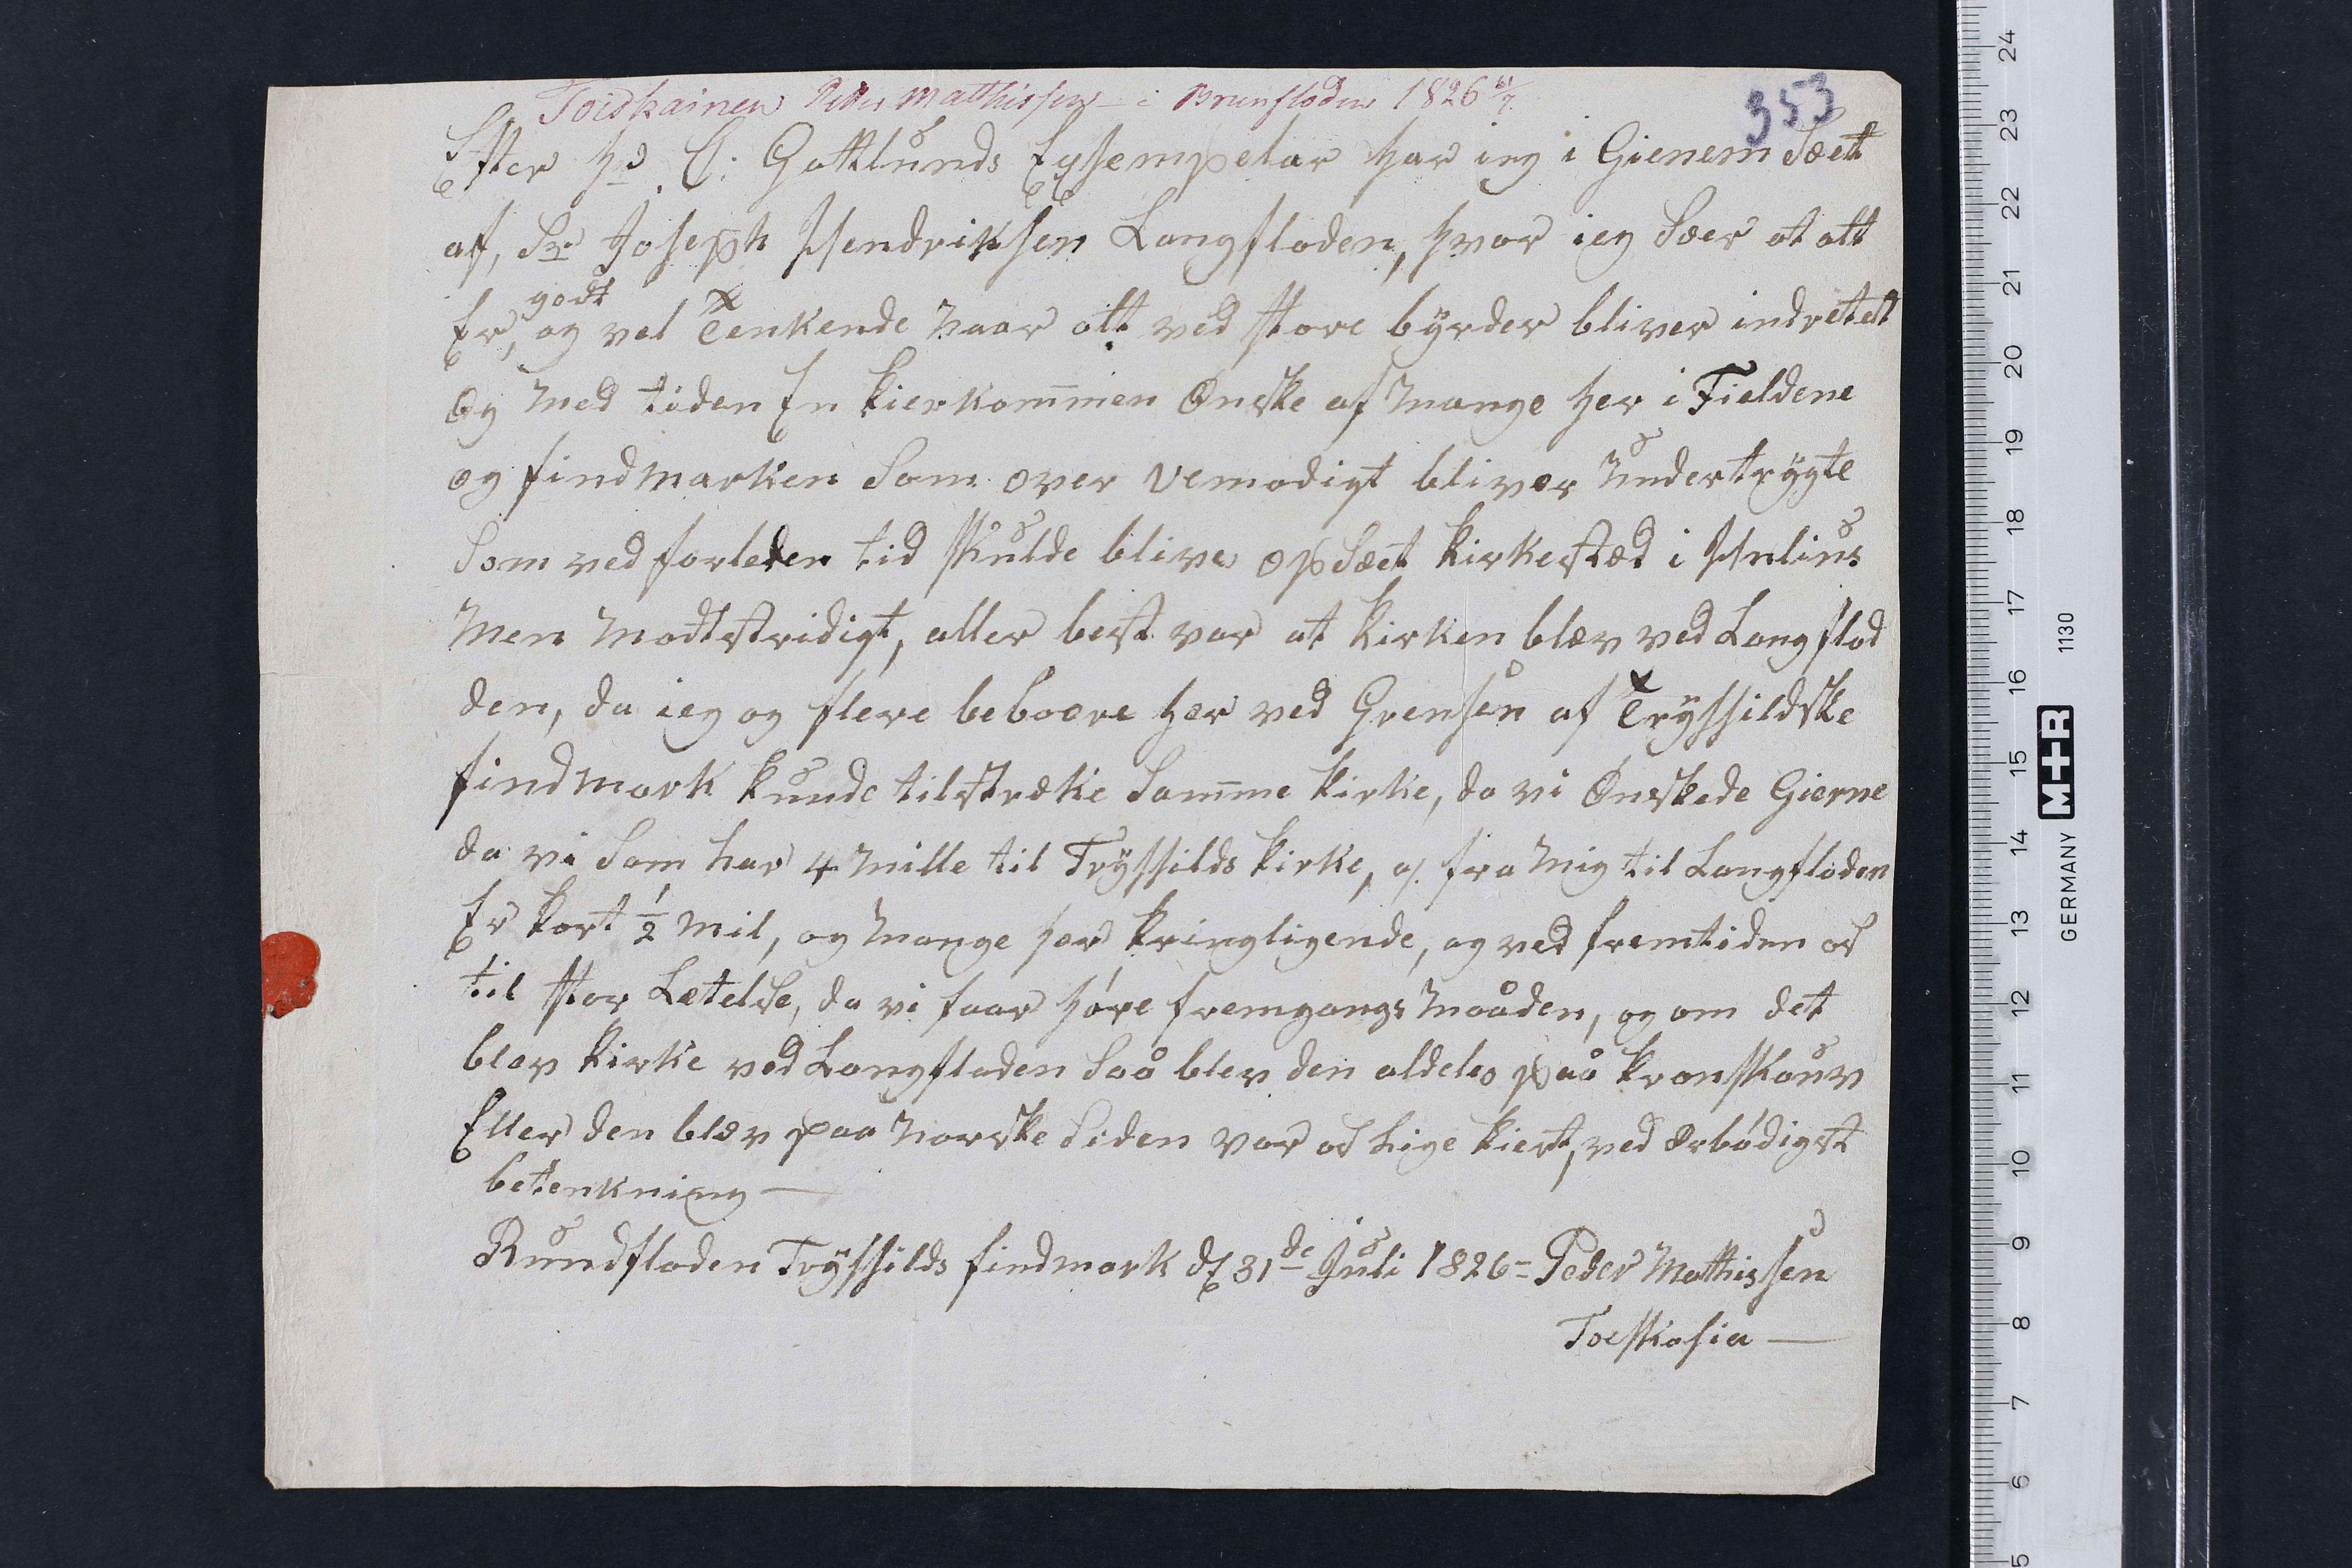 Toiskainen Peder Mathissen i Brunfloden 1826 31/7.
353
Efter Hr C: Gottlunds Exsempelar har ieg i Gienem Sæet
af, Sr Joseph Hendriksen Langfloden, hvor ieg Sær at alt
Er, godt og vel Tenkende naar alt ved store byrder bliver indretet
Og med tiden En kierkommen Ønske af mange her i Fieldene
og findmarken Som over Vemodigt bliver undertrygte
Som ved forleden tid skulde blive opSæet kirkestæd i Hulius
men modtstridigt, aller best var at kirken blev ved Langflod
den, da ieg og flere beboere her ved Grensen af Tryssildske
findmark kunde tilstrække Samme kirke, da vi Ønskede Gierne
da vi Som har 4 mille til Tryssilds kirke, og fra mig til Langfloden
Er kort ½ mil, og mange her kringligende, og ved fremtiden os
til stor Letelse, da vi faar høre fremgangs maaden, og om det
blev kirke ved Langfloden Saa blev den aldeles paa kronskouv
Eller den blev paa norske Siden var os Lige kiert, ved ærbødigst
betenkning —
Rundfloden Tryssilds findmark d 31de Juli 1826 = Peder Mathissen
Toeskasia —
GERMANY M+R 1130
24
23
22
21
20
19
18
17
16
15
14
13
12
11
10
9
8
7
6
5